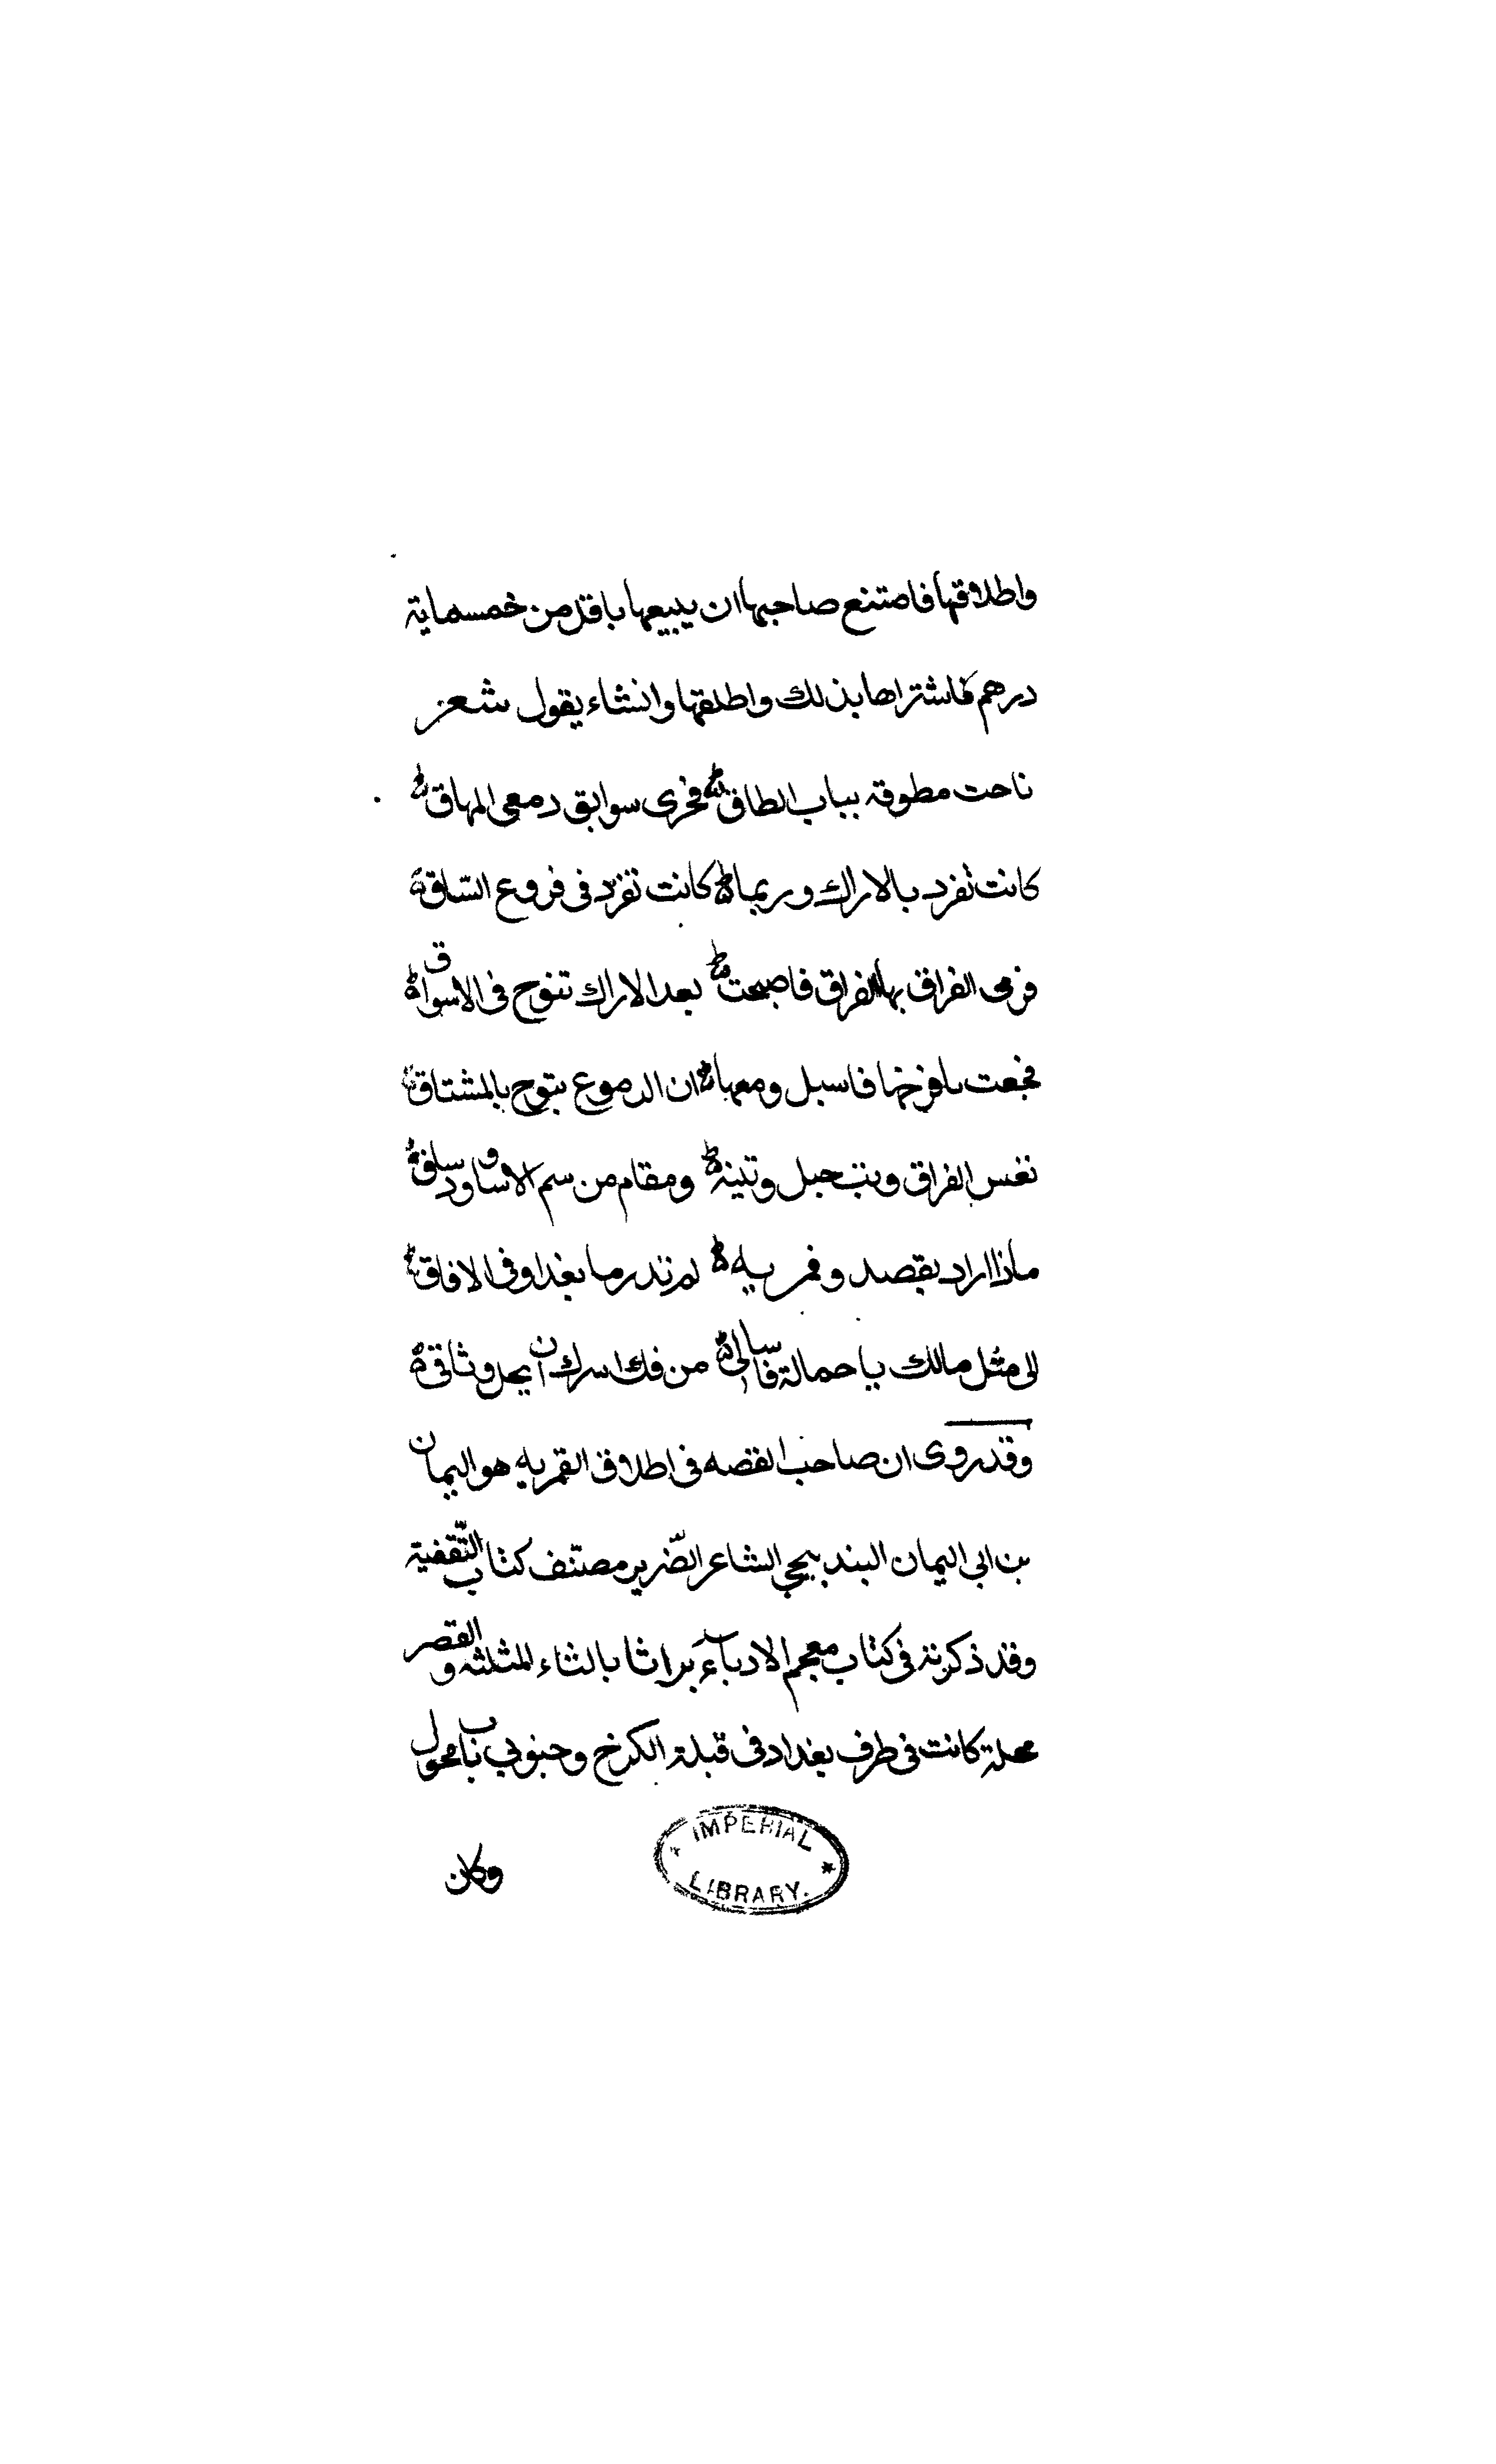 واطلاقها فامتنع صاحبها ان يبيعها باقل من خمسماية
درهم فاشتراها بذلك واطلقها وانشاء يقول شعر
ناحت مطوقة بباب الطاق فجرى سوابق دمعي المهاق
كانت تفرد بالاراك وربما كانت تفرد في فروع الساق
فرمى الفراق بها الفراق فاصبحت بعد الاراك تنوح في الاسواق
فجعت بافرخها فاسبل ومعها ان الدموع بتوح بالمشتاق
نفس الفراق وبت حبل وتينه ومقام من سم الاساود ساق
ماذا اراد بقصد وقمريه لم تدر ما بغداد وفي الافاق
الى مثل مالك يا حمالة فاسالى من فك اسرك ان يحل وثاقى
وقد روى ان صاحب القصه في اطلاق القمريه هو اليمان
بن ابي اليمان البندبيجي الشاعر الضرير مصنف كتاب التقفية
وقد ذكرته في كتاب معجم الادباء براثا بالثاء المثلثه والقصر
محلة كانت في طرف بغداد في قبلة الكرخ وجنوبي باب محول
IMPERIAL
LIBRARY.
وكان